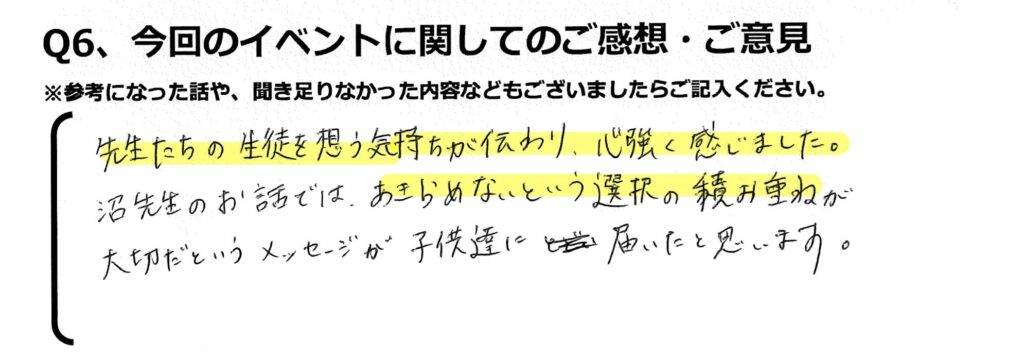 Q6、今回のイベントに関してのご感想・ご意見
※参考になった話や、聞き足りなかった内容などもございましたらご記入ください。
先生たちの生徒を想う気持ちが伝わり、心強く感じました。
沼先生のお話では、あきらめないという選択の積み重ねが
大切だというメッセージが子供達に届いたと思います。